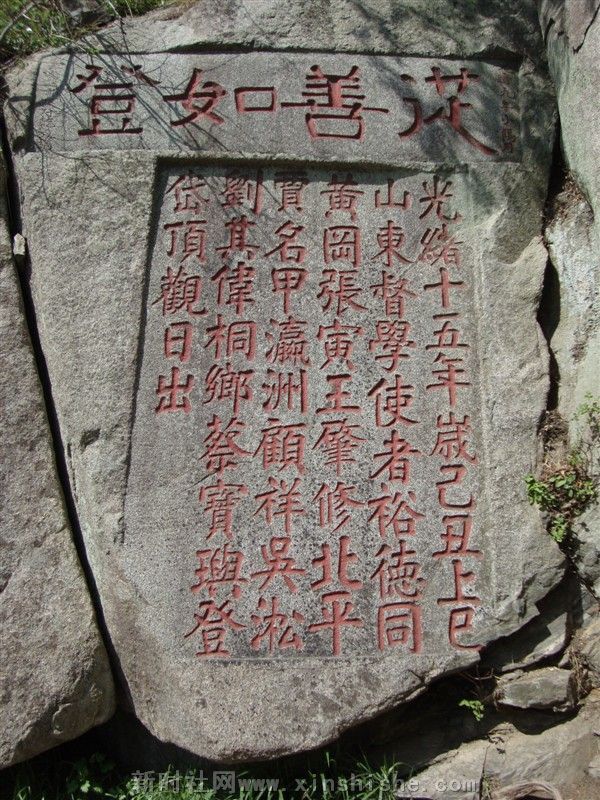 從善如登
光緒十五年歲己丑上巳
山東督學使者裕德同
黃岡張寅王肇修北平
賈名甲瀛洲顧祥吳淞
劉其偉桐鄉蔡寶璵登
岱頂觀日出
新时社网www.xinshishe.com